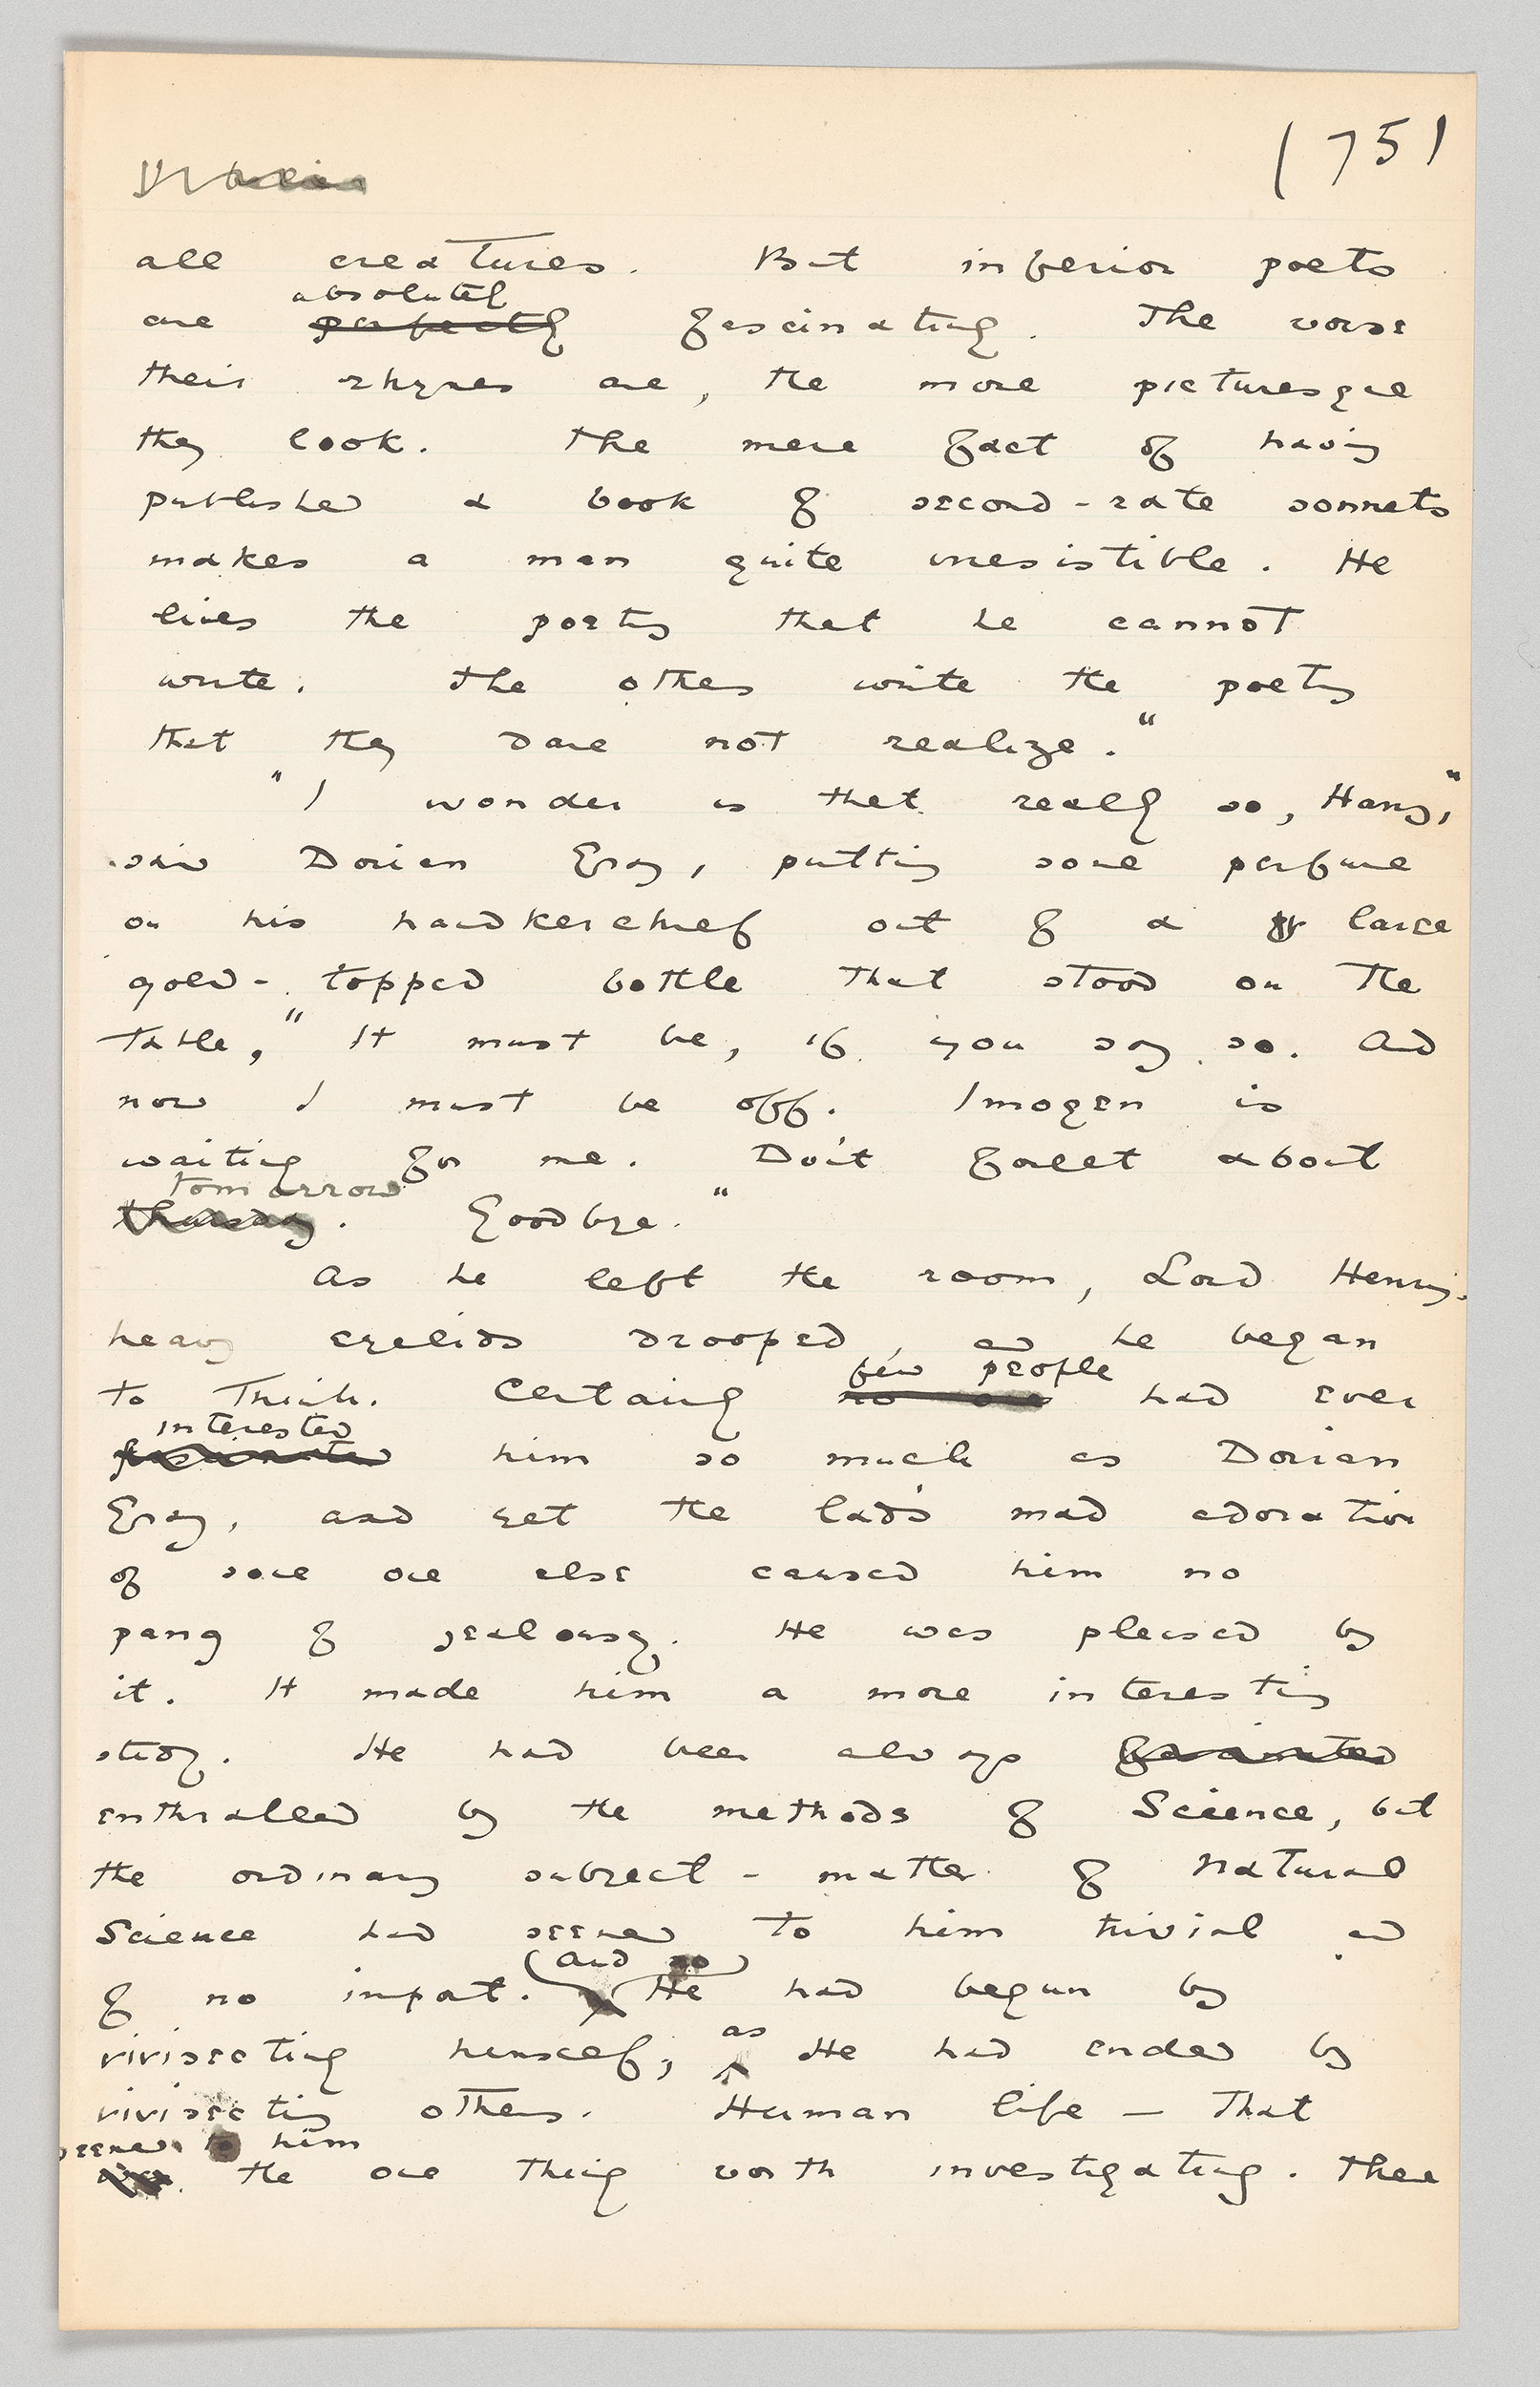 (75)
all creatures. But inferior poets
absolutely
are perfectly fascinating. The worse
their rhymes are, the more picturesque
they look. The mere fact of having
published a book of second-rate sonnets
makes a man quite irresistible. He
lives the poetry that he cannot
write. The others write the poetry
that they dare not realize."
"I wonder is that really so, Harry,"
said Dorian Gray, putting some perfume
on his handkerchief out of a large
gold-topped bottle that stood on the
table, "It must be, if you say so. And
now I must be off. Imogen is
waiting for me. Don't forget about
tomorrow
Thursday. Goodbye."
As he left the room, Lord Henry's
heavy eyelids drooped, and he began
few people
to think. Certainly no one had ever
interested
fascinated him so much as Dorian
Gray, and yet the lad's mad adoration
of some one else caused him no
pang of jealousy. He was pleased by
it. It made him a more interesting
study. He had been always fascinated
enthralled by the methods of Science, but
the ordinary subject-matter of Natural
Science had seemed to him trivial and
and so
of no import. He had begun by
as
vivisecting himself, He had ended by
vivisecting others. Human life — that
seemed to him
was the one thing worth investigating. There